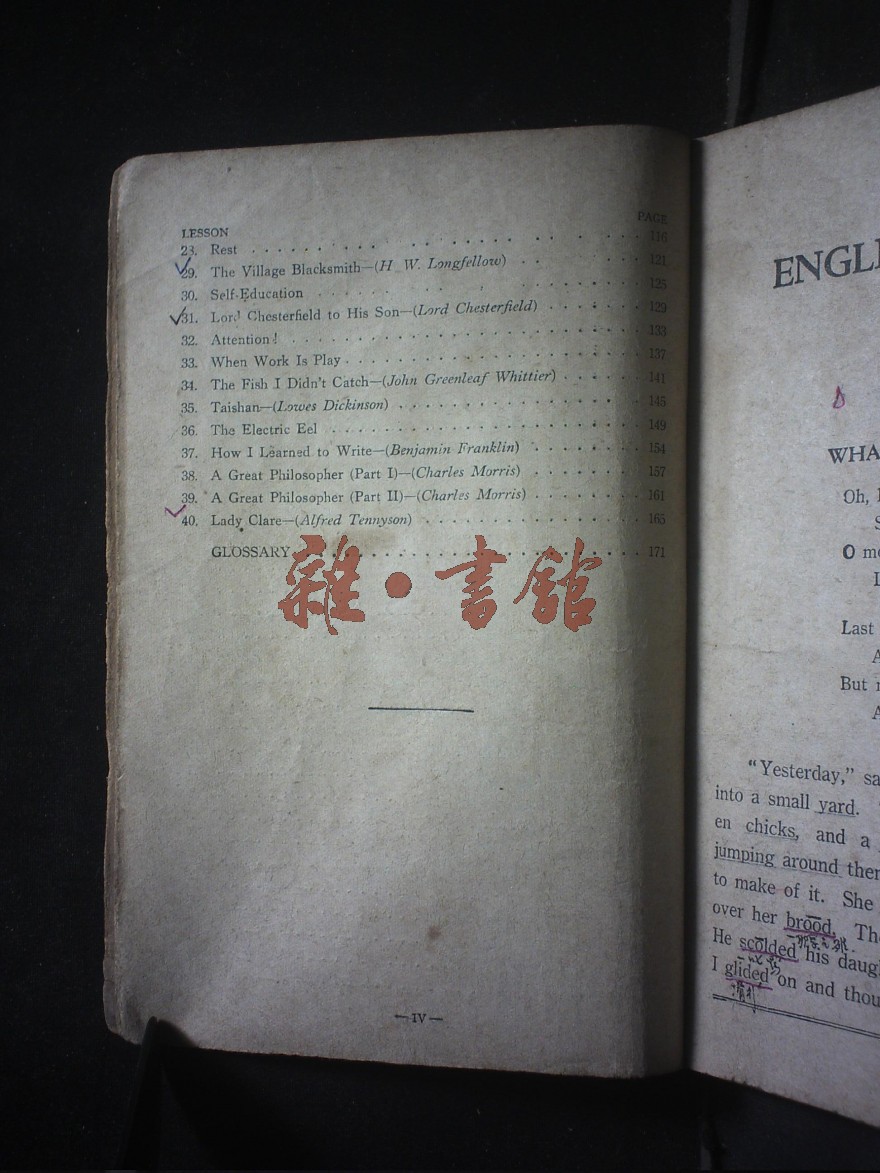 LESSON PAGE
28. Rest . . . . 116
29. The Village Blacksmith—(H. W. Longfellow) . . 121
30. Self-Education . . . . 125
31. Lord Chesterfield to His Son—(Lord Chesterfield) . . . . 129
32. Attention! . . . . 133
33. When Work Is Play . . . . 137
34. The Fish I Didn't Catch—(John Greenleaf Whittier) . . . . 141
35. Taishan—(Lowes Dickinson) . . . . 145
36. The Electric Eel . . . . 149
37. How I Learned to Write—(Benjamin Franklin) . . . . 154
38. A Great Philosopher (Part I)—(Charles Morris) . . . . 157
39. A Great Philosopher (Part II)—(Charles Morris) . . . . 161
40. Lady Clare—(Alfred Tennyson) . . . . 165
GLOSSARY . . . . 171
雜·書館
—IV—
ENGL
WHA
Oh,
S
O
Last
A
But
A
"Yesterday," sa
into a small yard.
en chicks, and a
jumping around ther
to make of it. She
over her brood. The
He scolded his daug
I glided on and thou